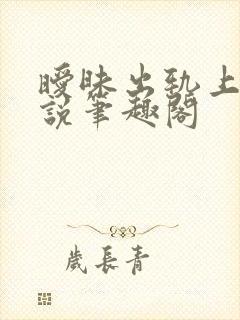 曖昧出軌上
說筆趣閣
歲長青